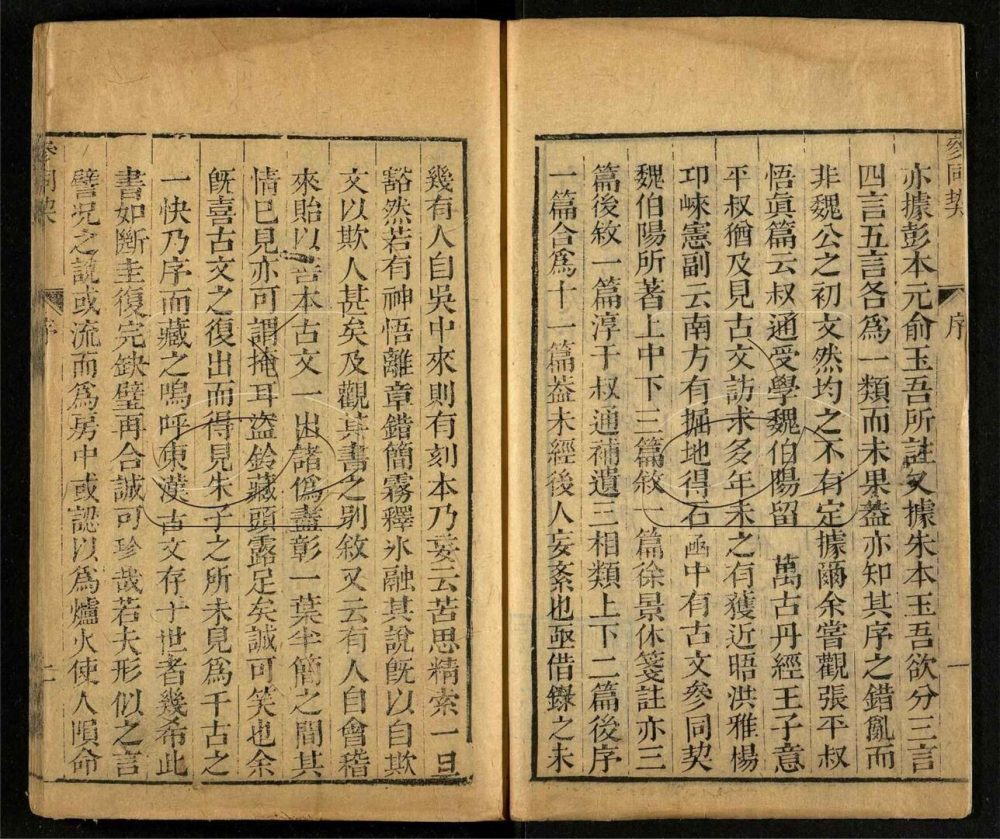 參同契 序 一
亦據彭本元俞玉吾所註又據朱本玉吾欲分三言
四言五言各爲一類而未果葢亦知其序之錯亂而
非魏公之初文然均之不有定據爾余嘗觀張平叔
悟眞篇云叔通受學魏伯陽留 萬古丹經王子意
平叔猶及見古文訪求多年未之有獲近晤洪雅楊
邛崍憲副云南方有掘地得石凾中有古文參同契
魏伯陽所著上中下三篇敘一篇徐景休箋註亦三
篇後敘一篇淳于叔通補遺三相類上下二篇後序
一篇合爲十一篇葢未經後人妄紊也亟借錄之未
幾有人自吳中來則有刻本乃妄云苦思精索一旦
豁然若有神悟離章錯簡霧釋氷融其說旣以自欺
文以欺人甚矣及觀其書之別敘又云有人自會稽
來貽以善本古文一出諸僞盡彰一葉半簡之間其
情已見亦可謂掩耳盜鈴藏頭露足矣誠可笑也余
旣喜古文之復出而得見朱子之所未見爲千古之
一快乃序而藏之嗚呼東漢古文存于世者幾希此
書如斷圭復完缺璧再合誠可珍哉若夫形似之言
譬况之說或流而爲房中或認以爲爐火使人隕命
參同契 序 二